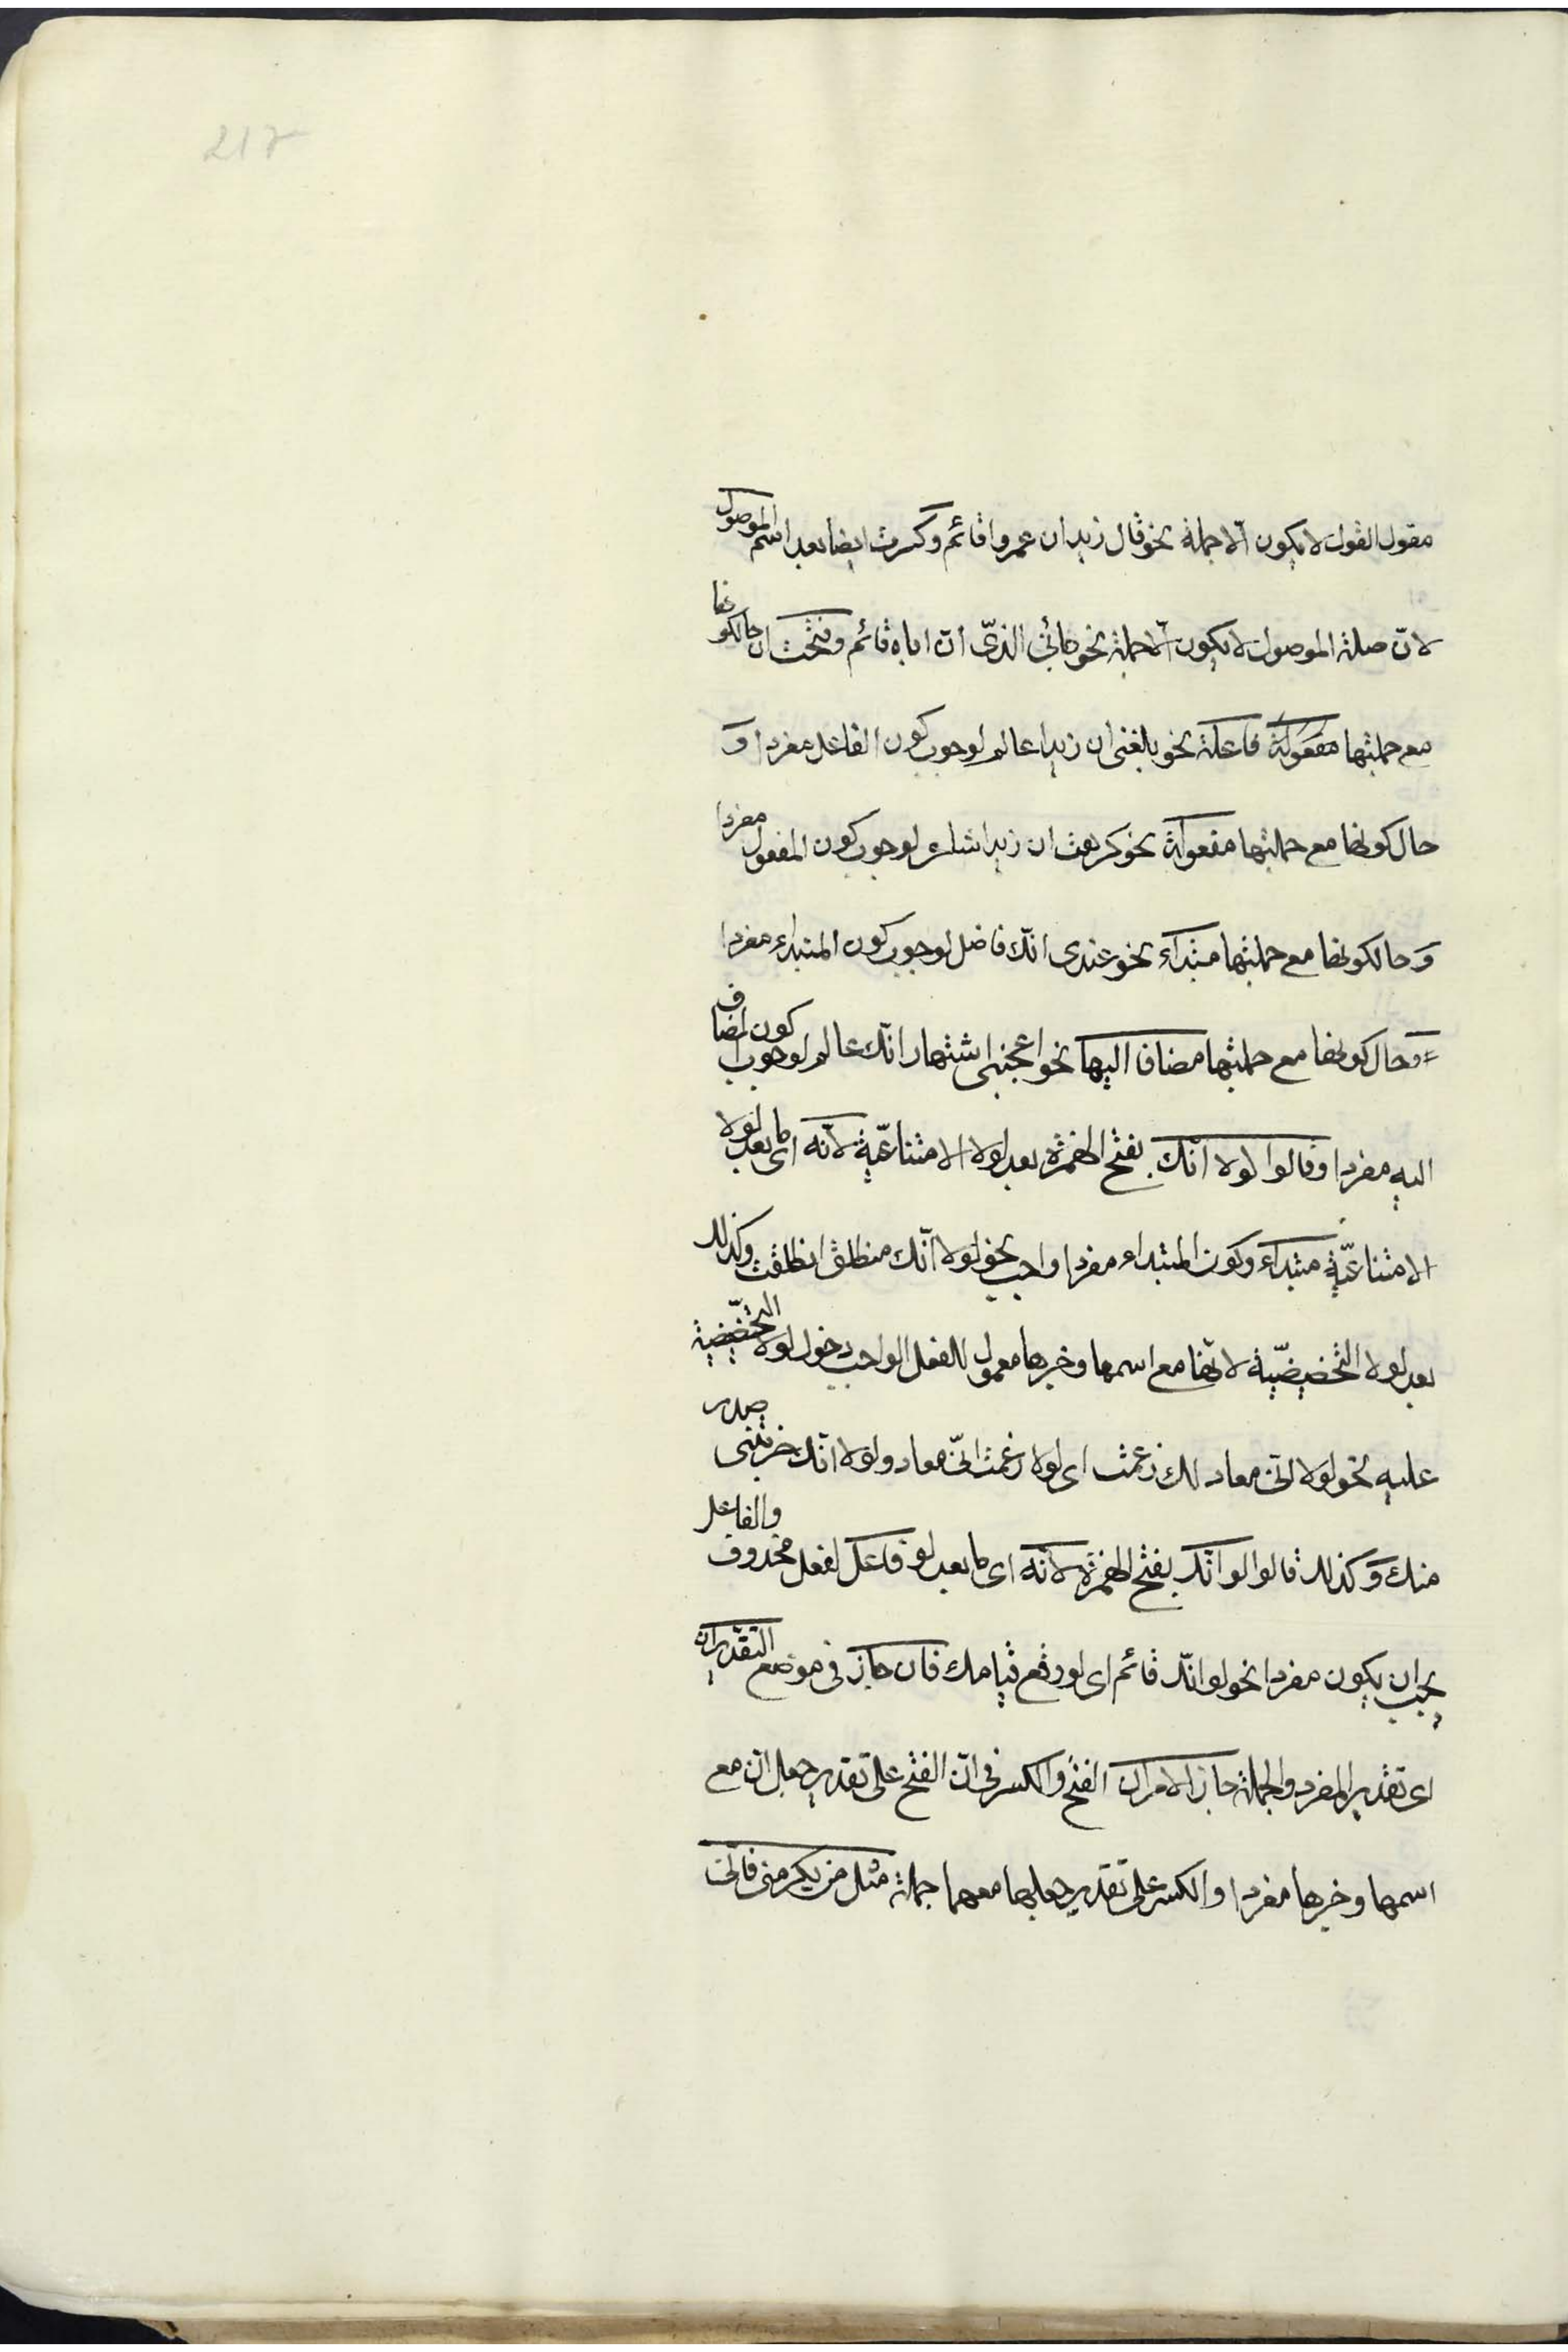 217
مقول القول لا يكون الا جملة نحو قال زيد ان عمروا قائم وكسرت ايضا بعد اسم الموصول
لانّ صلة الموصول لا يكون الا جملة نحو جائني الذىّ انّ اباه قائم وفتحت ان حالكونها
مع جملتها مفعولة فاعلة نحو بلغنى ان زيدا عالم لوجوب كون الفاعل مفردا وَ
حال كونها مع جملتها مفعولة نحو كرهت ان زيدا شاعر لوجوب كون المفعول مفردا
وَحالكونها مع جملتها مبتداء نحو عندى انّك فاضل لوجوب كون المبتداء مفردا
وحال كونها مع جملتها مضافا اليها نحو اعجبنى اشتهار انّك عالم لوجوب كون المضاف
اليه مفردا وقالوا لولا انّك بفتح الهمزة بعد لولا الامتناعيّة لانّه اى ما بعد لولا
الامتناعيّة مبتداء وكون المبتداء مفردا واجب نحو لولا انّك منطلق انطلقت وكذلك
بعد لولا التحضيضيّة لانّها مع اسمها وخبرها معمول للفعل الواجب دخول لولا التحضيضية
عليه نحو لولا انّى معاد لك زعمت اى لولا زعمت انّى معاد ولولا انّك ضربتنى صدر
منك وَكذلك قالوا لو انّك بفتح الهمزة لانّه اى ما بعد لو فاعل لفعل محذوف والفاعل
يجب ان يكون مفردا نحو لو انّك قائم اى لو وقع قيامك فان جاز فى موضع التقديران
اى تقدير المفرد والجملة جاز الامران الفتح والكسر فى انّ الفتح على تقدير جعل انّ مع
اسمها وخبرها مفردا والكسر على تقدير جعلها معهما جملة مثل من يكرمنى فانّى